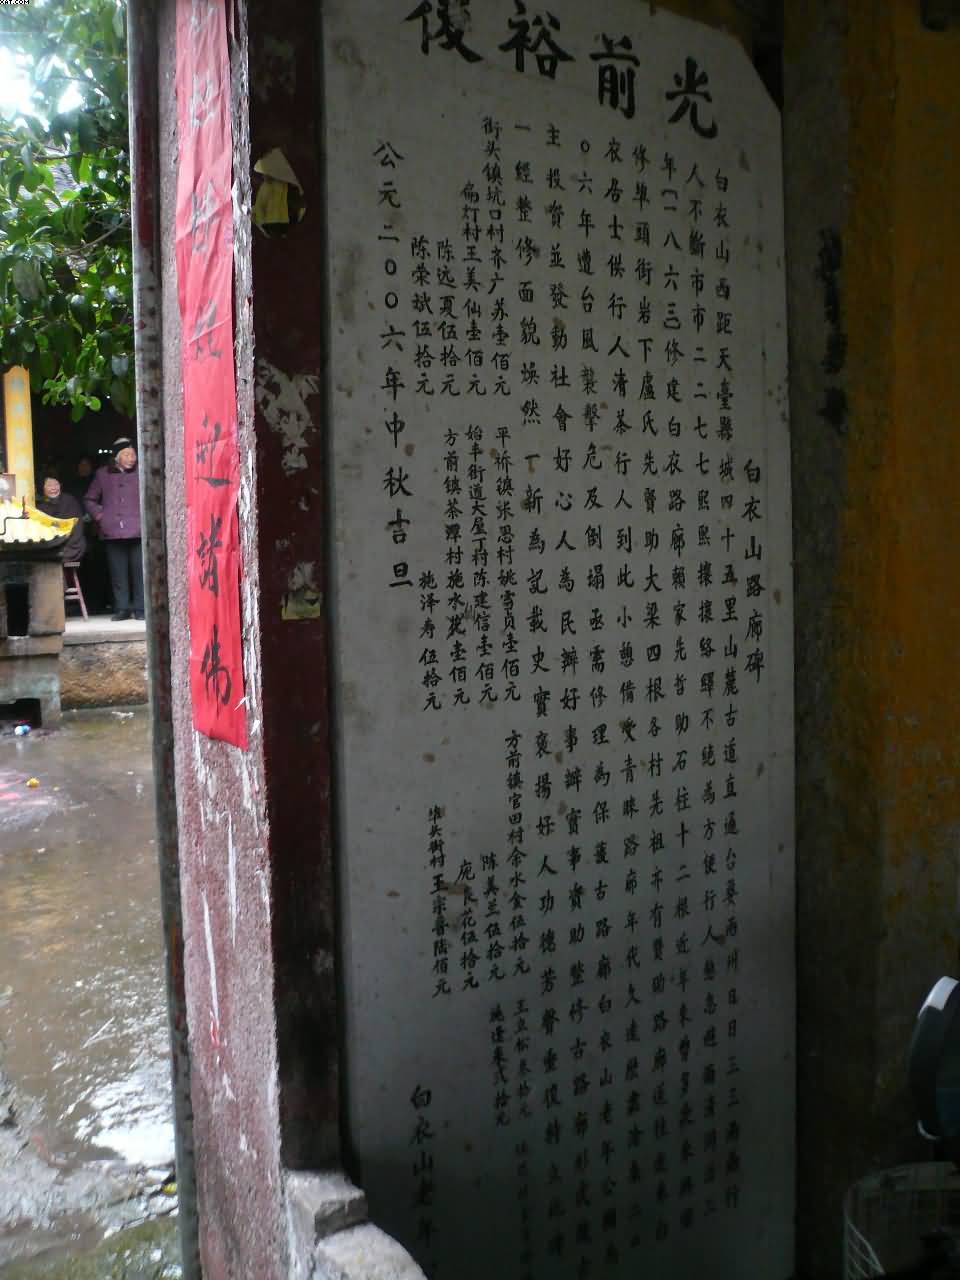 光前裕後
白衣山路廊碑
白衣山西距天臺縣城四十五里山麓古道直通台婺兩州日日三三兩兩行
人不斷市市二二七七熙熙攘攘絡繹不绝為方便行人憩息避雨清同治三
年(一八六三)修建白衣路廊賴家先哲助石柱十二根近年來曾多次
修埠頭街岩下盧氏先賢助大梁四根各村先祖亦有贊助路廊
衣居士供行人清茶行人到此小憩備受青睞路廊年代久遠歷盡滄桑二〇
〇六年遭台風襲擊危及倒塌亟需修理為保護古路廊白衣山老年公園
主投資並發動社會好心人為民辦好事辦實事資助整修古路廊
一經整修面貌焕然一新為記載史實褒揚好人功德芳聲垂後特立此碑
街头镇坑口村齐广苏壹佰元 平桥镇张思村姚雪贞壹佰元 方前镇官田村余水金伍拾元 王立松叁拾元
扁灯村王美仙壹佰元 始丰街道大屋丁村陈建信壹佰元 陈美兰伍拾元 施逢来弍拾元
陈远夏伍拾元 方前镇茶潭村施水花壹佰元 庞良花伍拾元
陈荣斌伍拾元 施泽寿伍拾元 埠头街村王宗普陆佰元
公元二00六年中秋吉旦 白衣山老年
諸佛